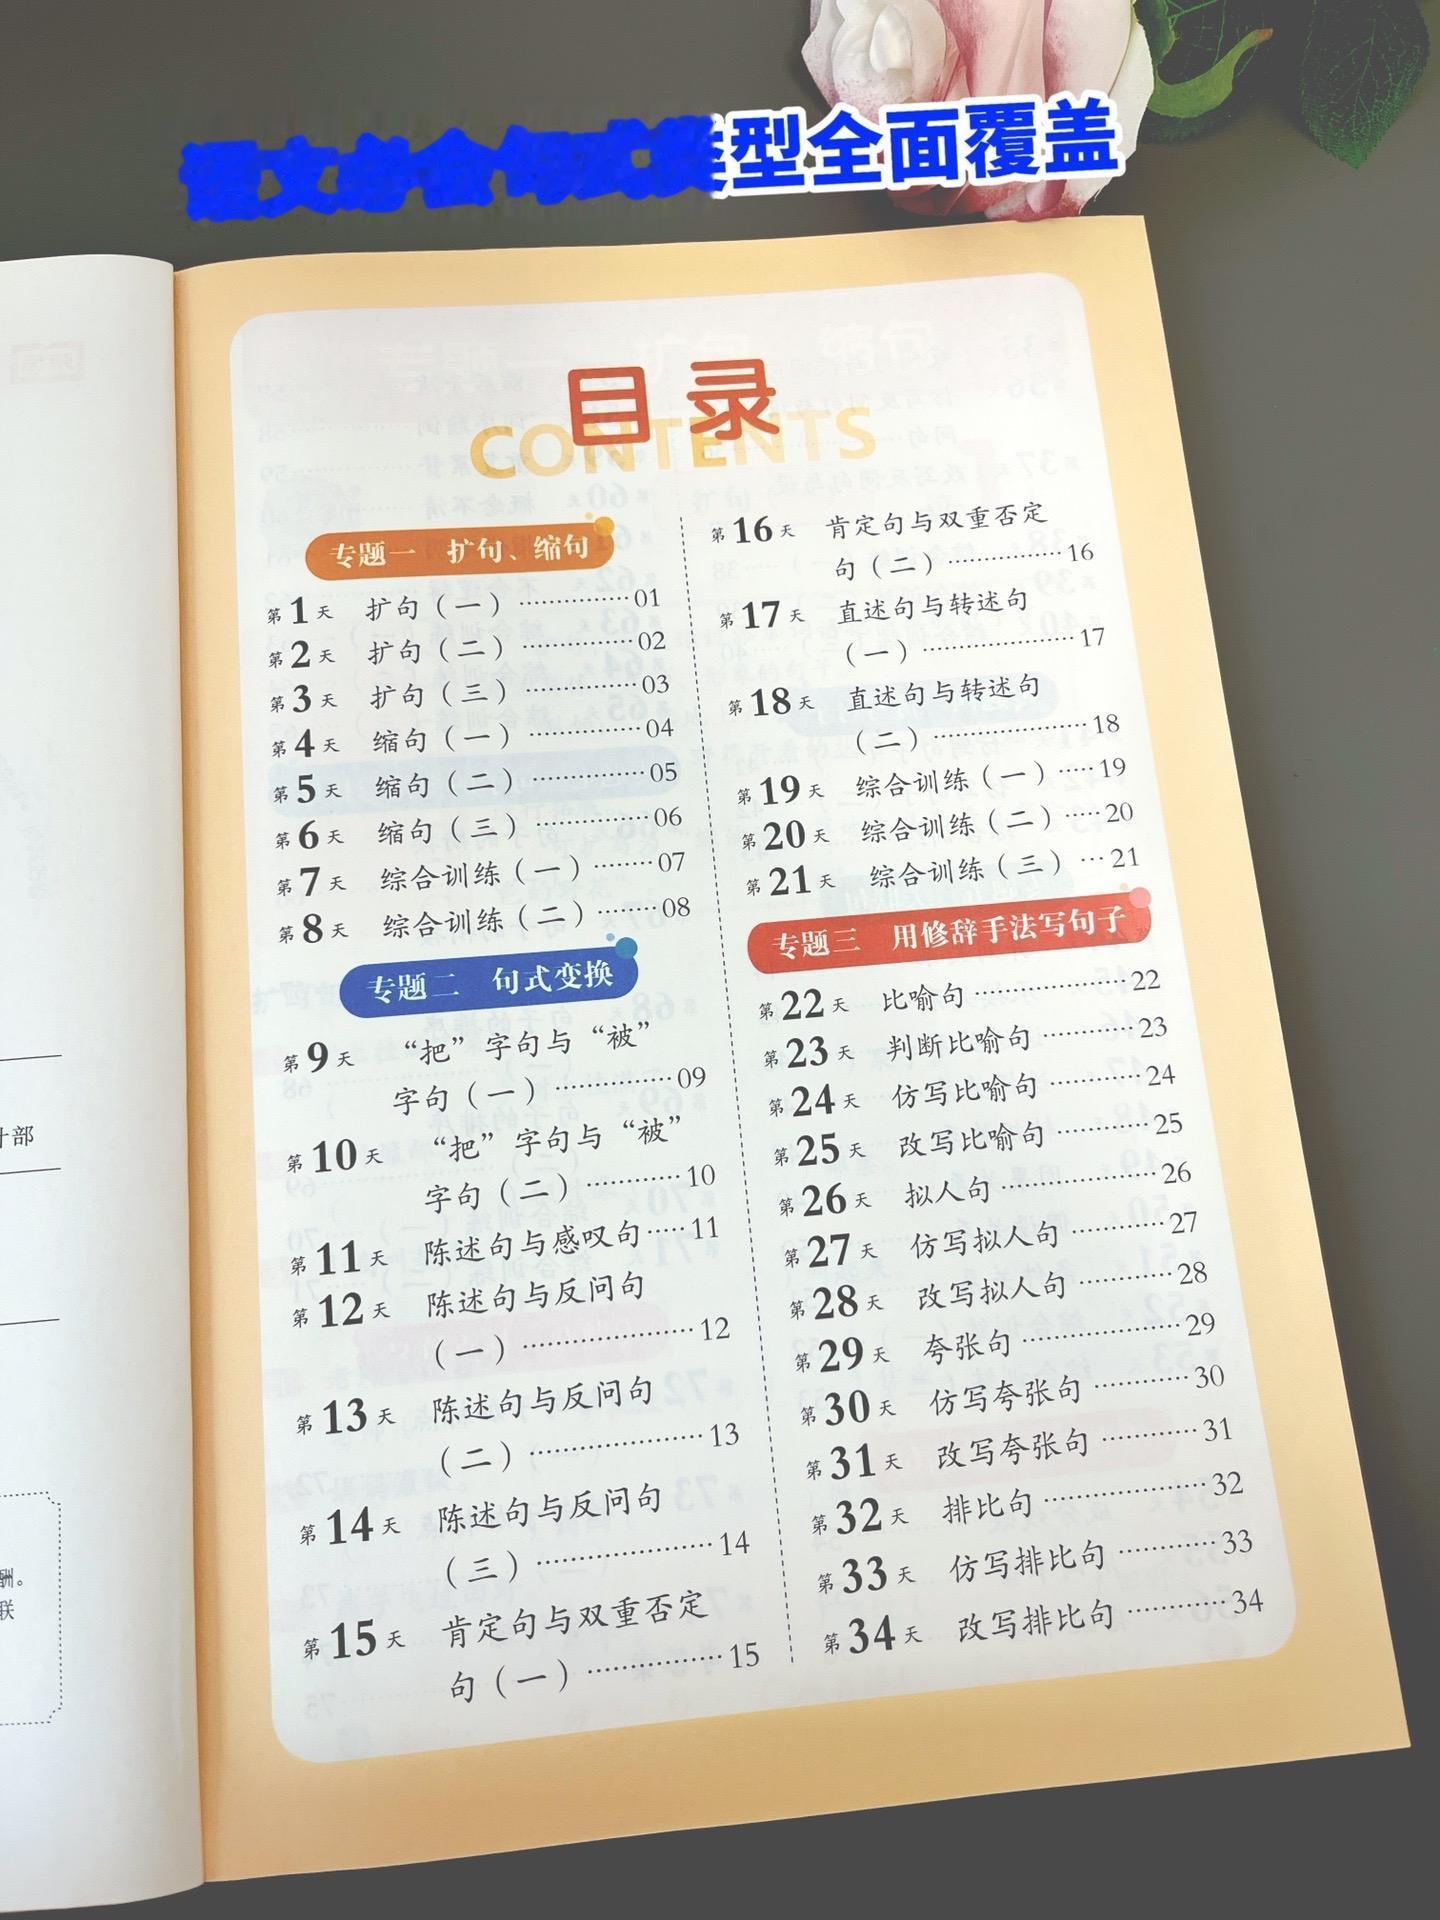 语文必会句式类型全面覆盖
目录
CONTENTS
专题一 扩句、缩句
第1天 扩句（一）……………01
第2天 扩句（二）……………02
第3天 扩句（三）……………03
第4天 缩句（一）……………04
第5天 缩句（二）……………05
第6天 缩句（三）……………06
第7天 综合训练（一）………07
第8天 综合训练（二）………08
专题二 句式变换
第9天 “把”字句与“被”
字句（一）……………09
第10天 “把”字句与“被”
字句（二）……………10
第11天 陈述句与感叹句……11
第12天 陈述句与反问句
（一）……………………12
第13天 陈述句与反问句
（二）……………………13
第14天 陈述句与反问句
（三）……………………14
第15天 肯定句与双重否定
句（一）………………15
第16天 肯定句与双重否定
句（二）………………16
第17天 直述句与转述句
（一）…………………17
第18天 直述句与转述句
（二）…………………18
第19天 综合训练（一）……19
第20天 综合训练（二）……20
第21天 综合训练（三）…21
专题三 用修辞手法写句子
第22天 比喻句…………………22
第23天 判断比喻句……………23
第24天 仿写比喻句……………24
第25天 改写比喻句……………25
第26天 拟人句…………………26
第27天 仿写拟人句……………27
第28天 改写拟人句……………28
第29天 夸张句…………………29
第30天 仿写夸张句……………30
第31天 改写夸张句……………31
第32天 排比句…………………32
第33天 仿写排比句……………33
第34天 改写排比句……………34
计部
酬。
联